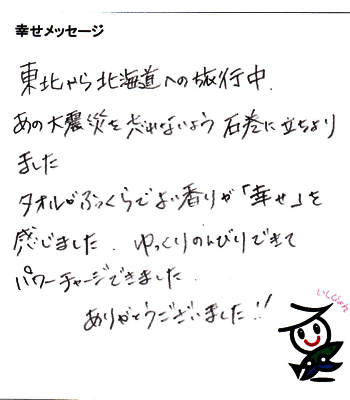 幸せメッセージ
東北から北海道への旅行中.
あの大震災を忘れないよう 石巻に立ちより
ました
タオルがふっくらでよい香りが「幸せ」を
感じました. ゆっくりのんびりできて
パワーチャージできました.
ありがとうございました!!
いしぴょん